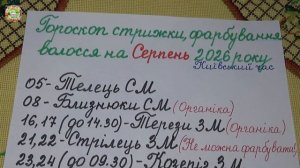 Гороскоп стрижки, фарбування
волосся на Серпень 2026 року
Київський час
05-Телець СМ
08-Близнюки СМ (Органіка)
16,17 (до 14.30)-Терези ЗМ (Органіка)
21,22-Стрілець ЗМ (Не можна фарбувати)
23,24 (до 09.30)-Козеріг ЗМ